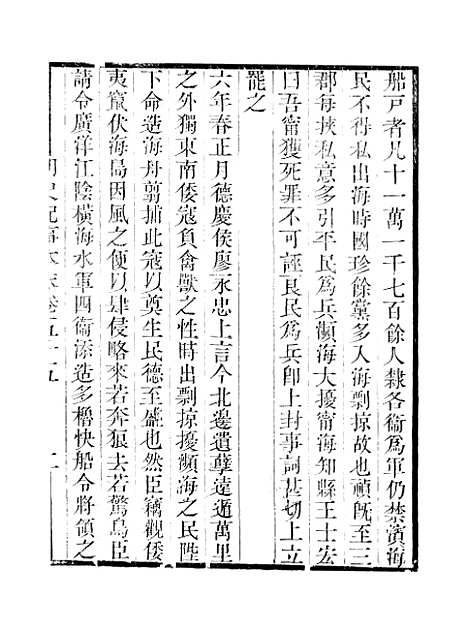 船戸者凡十一萬一千七百餘人隸各衞爲軍仍禁濱海
民不得私出海時國珍餘黨多入海剽掠故也禎旣至三
郡每挾私意多引平民爲兵瀕海大擾甯海知縣王士宏
曰吾甯獲死罪不可誣良民爲兵卽上封事詞甚切上立
罷之
六年春正月德慶侯廖永忠上言今北邊遺孽遠遁萬里
之外獨東南倭寇負禽獸之性時出剽掠擾瀕海之民陛
下命造海舟翦捕此寇以奠生民德至盛也然臣竊觀倭
夷竄伏海島因風之便以肆侵略來若奔狼去若驚鳥臣
請令廣洋江陰橫海水軍四衞添造多櫓快船令將領之
明史紀事本末卷五十五